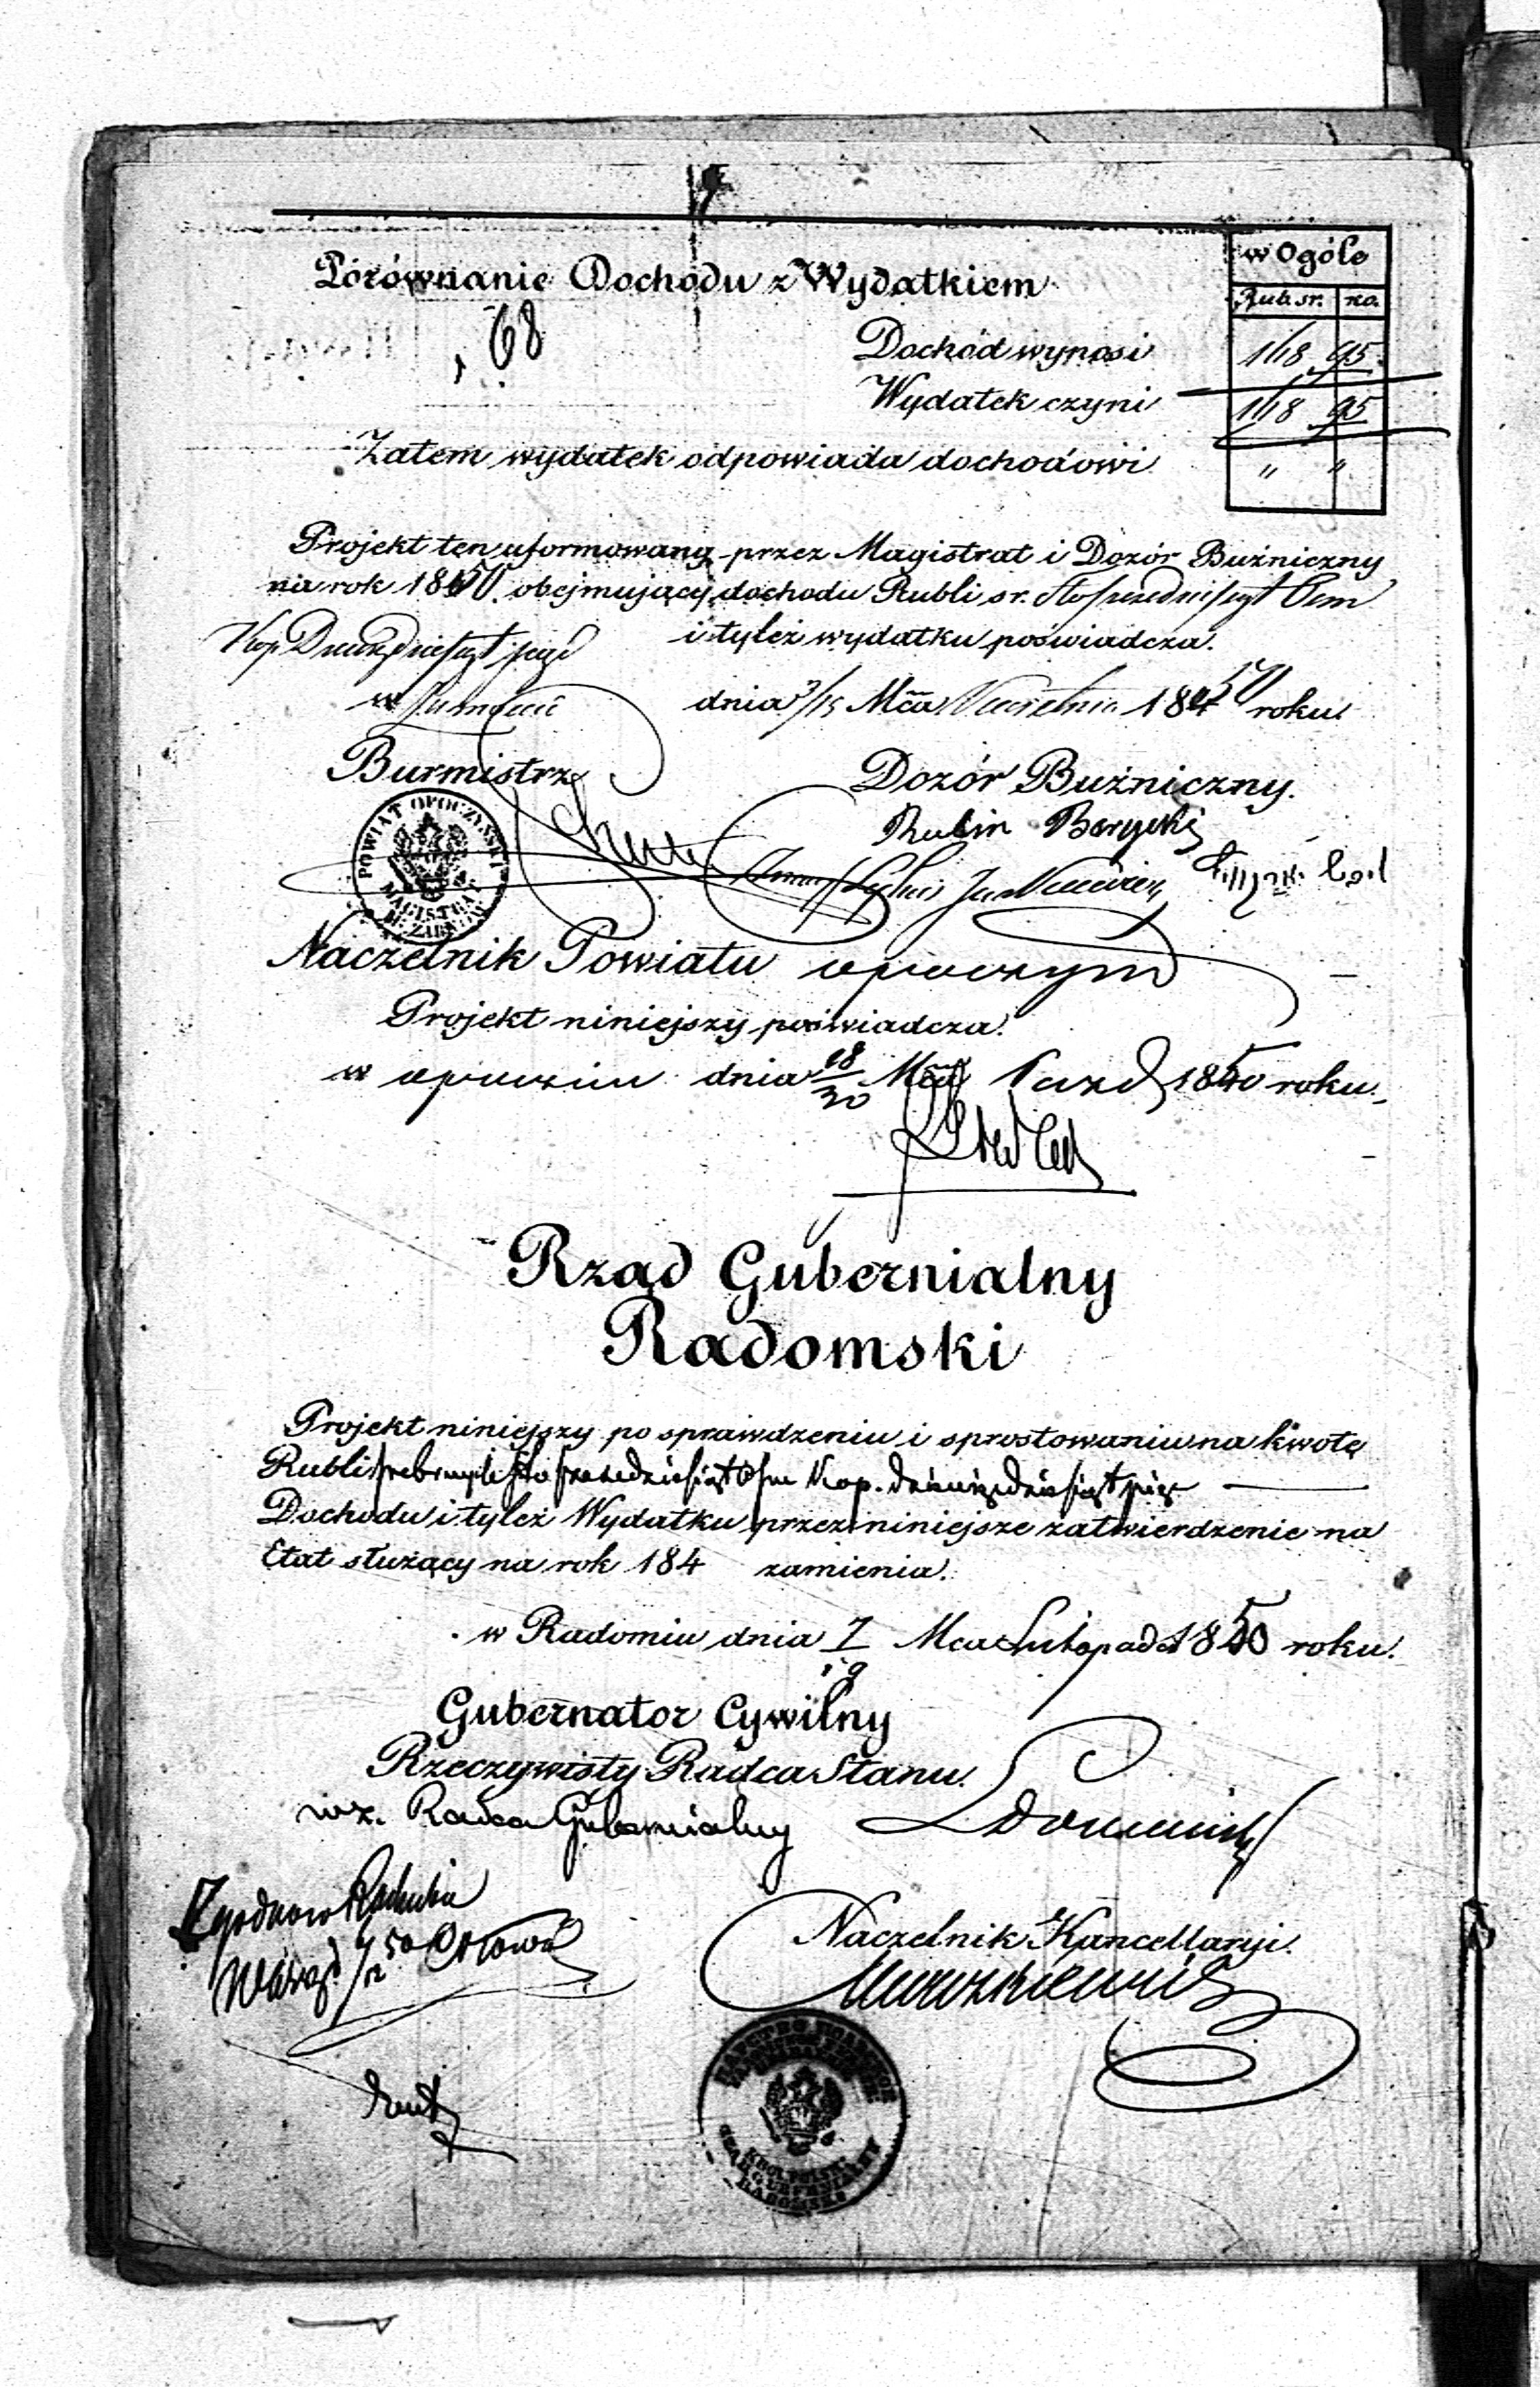 Porównanie Dochodu z Wydatkiem
w Ogóle
Rub. sr. ko.
68
Dochód wynosi 168 95
Wydatek czyni 168 95
Zatem wydatek odpowiada dochodowi " "
Projekt ten uformowany przez Magistrat i Dozór Buźniczny
na rok 1850. obejmujący dochodu Rubli sr. Stosześdziesiąt Ośm
Kop. Dziewiędziesiąt pięć i tyleż wydatku poświadcza.
w dnia 3/15 Mca Września 1850 roku
Burmistrz
Dozór Buźniczny.
POWIAT OPOCZYŃSKI
MAGISTRAT
M. ŻARNÓW
Rubin
Naczelnik Powiatu opoczyń
Projekt niniejszy poświadcza.
w opocznie dnia 18/30 Mca Paźd 1850 roku.
Rząd Gubernialny
Radomski
Projekt niniejszy po sprawdzeniu i sprostowaniu na kwotę
Rubli srebrnych Sto sześćdziesiąt Ośm Kop. dziewięćdziesiąt pięć
Dochodu i tyleż Wydatku przez niniejsze zatwierdzenie na
Etat służący na rok 184 zamienia.
w Radomiu dnia 7/19 Mca Listopada 1850 roku.
Gubernator Cywilny
Rzeczywisty Radca Stanu.
wz. Radca Gubernialny
Naczelnik Kancellaryi.
RADOMSKI